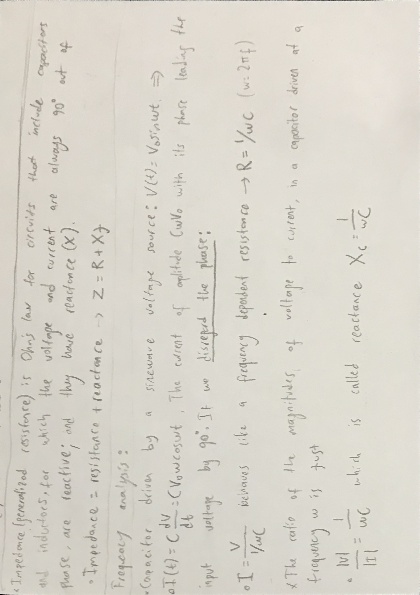 • Impedance (generalized resistance) is Ohm's law for circuits that include capacitors
and inductors, for which the voltage and current are always 90° out of
phase, are reactive; and they have reactance (X).
• Impedance = resistance + reactance → Z = R + Xj
Frequency analysis:
• Capacitor driven by a sinewave voltage source: V(t) = V₀sinωt. ⇒
• I(t) = C dV/dt = CV₀ωcosωt. The current of amplitude CωV₀ with its phase leading the
input voltage by 90°. If we disregard the phase:
• I = V/(1/ωC) behaves like a frequency dependent resistance → R = 1/ωC (ω = 2πf)
* The ratio of the magnitudes, of voltage to current, in a capacitor driven at a
frequency ω is just
• |V|/|I| = 1/ωC which is called reactance Xc = 1/ωC